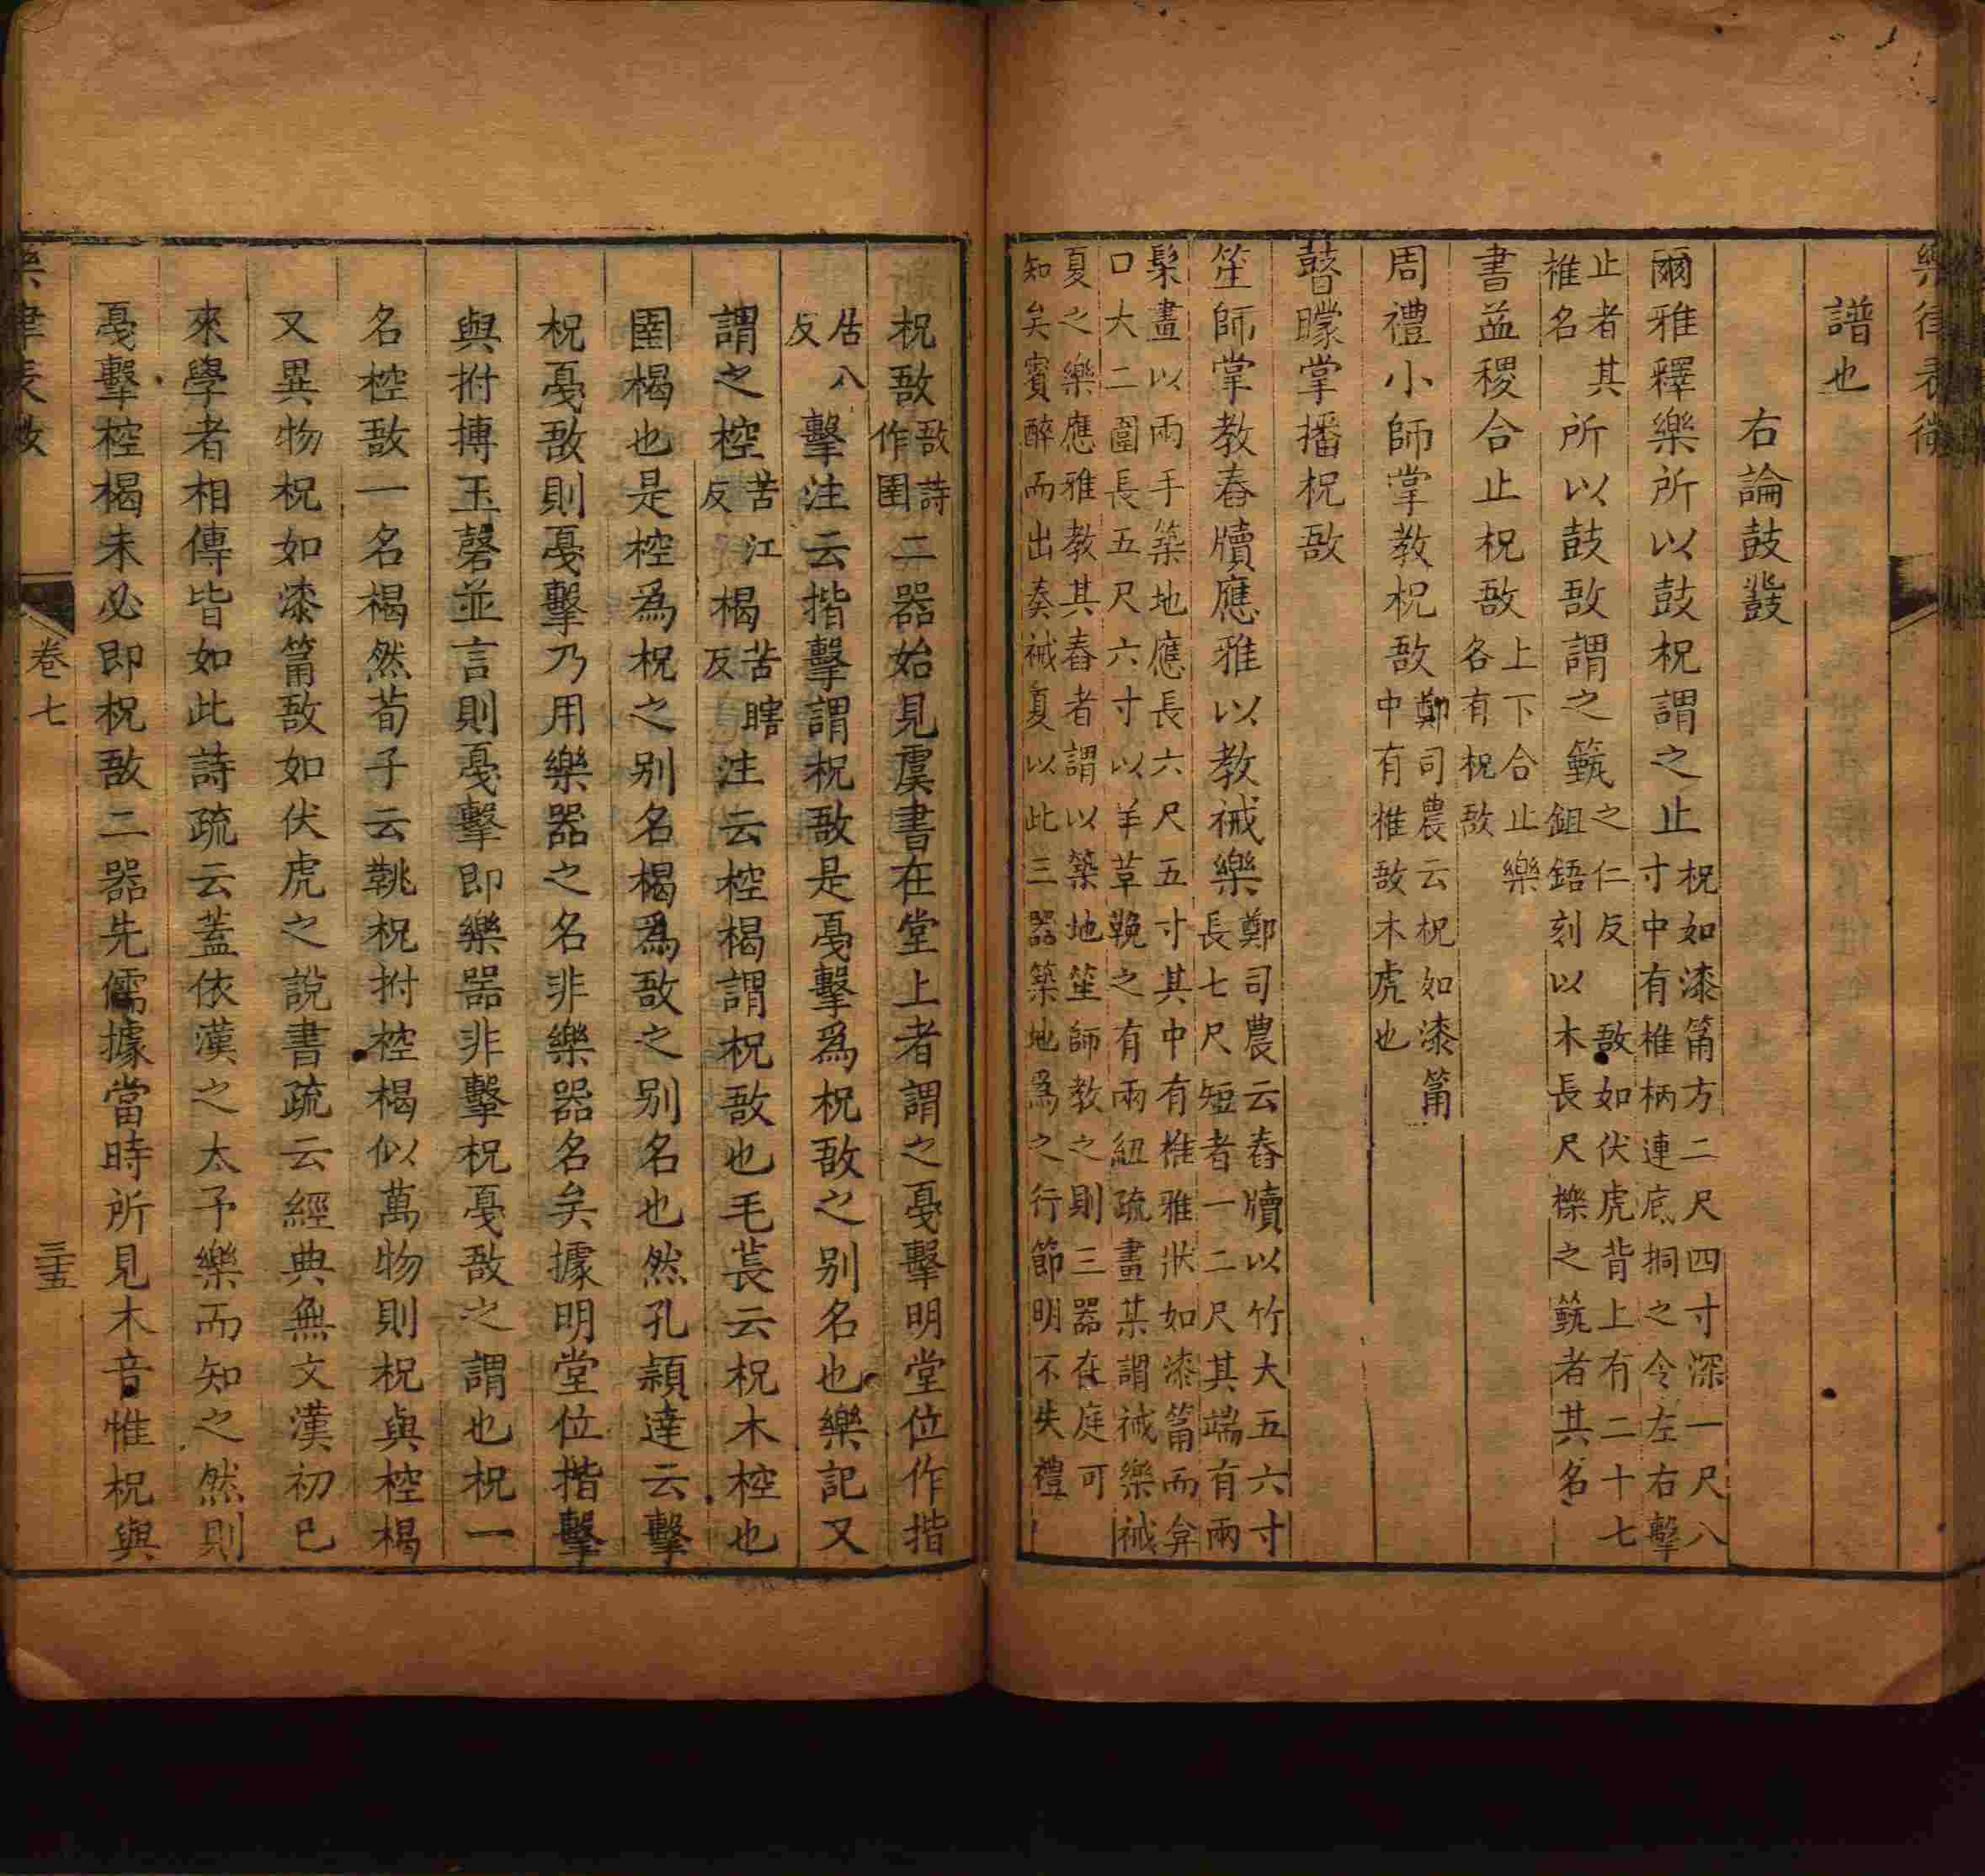 樂律表微
譜也
右論鼓鼗
爾雅釋樂所以鼓柷謂之止柷如漆筩方二尺四寸深一尺八寸中有椎柄連底挏之令左右擊
止者其椎名所以鼓敔謂之籈之仁反敔如伏虎背上有二十七鉏鋙刻以木長尺櫟之籈者其名
書益稷合止柷敔上下合止樂各有柷敔
周禮小師掌教柷敔鄭司農云柷如漆筩中有椎敔木虎也
瞽矇掌播柷敔
笙師掌教舂牘應雅以教祴樂鄭司農云舂牘以竹大五六寸長七尺短者一二尺其端有兩
髤畫以兩手築地應長六尺五寸其中有椎雅狀如漆筩而弇口大二圍長五尺六寸以羊韋鞔之有兩紐疏畫某謂祴樂祴
夏之樂應雅教其舂者謂以築地笙師教之則三器在庭可知矣賓醉而出奏祴夏以此三器築地爲之行節明不失禮
柷敔敔詩作圉二器始見虞書在堂上者謂之戞擊明堂位作揩
居八反擊注云揩擊謂柷敔是戞擊爲柷敔之别名也樂記又
謂之椌苦江反楬苦瞎反注云椌楬謂柷敔也毛萇云柷木椌也
圉楬也是椌爲柷之别名楬爲敔之别名也然孔穎達云擊
柷戞敔則戞擊乃用樂器之名非樂器名矣據明堂位揩擊
與拊搏玉磬並言則戞擊即樂器非擊柷戞敔之謂也柷一
名椌敔一名楬然荀子云鞉柷拊椌楬似萬物則柷與椌楬
又異物柷如漆筩敔如伏虎之說書疏云經典無文漢初已
來學者相傳皆如此詩疏云蓋依漢之太予樂而知之然則
戞擊椌楬未必即柷敔二器先儒據當時所見木音惟柷與
樂律表微
卷七
三五